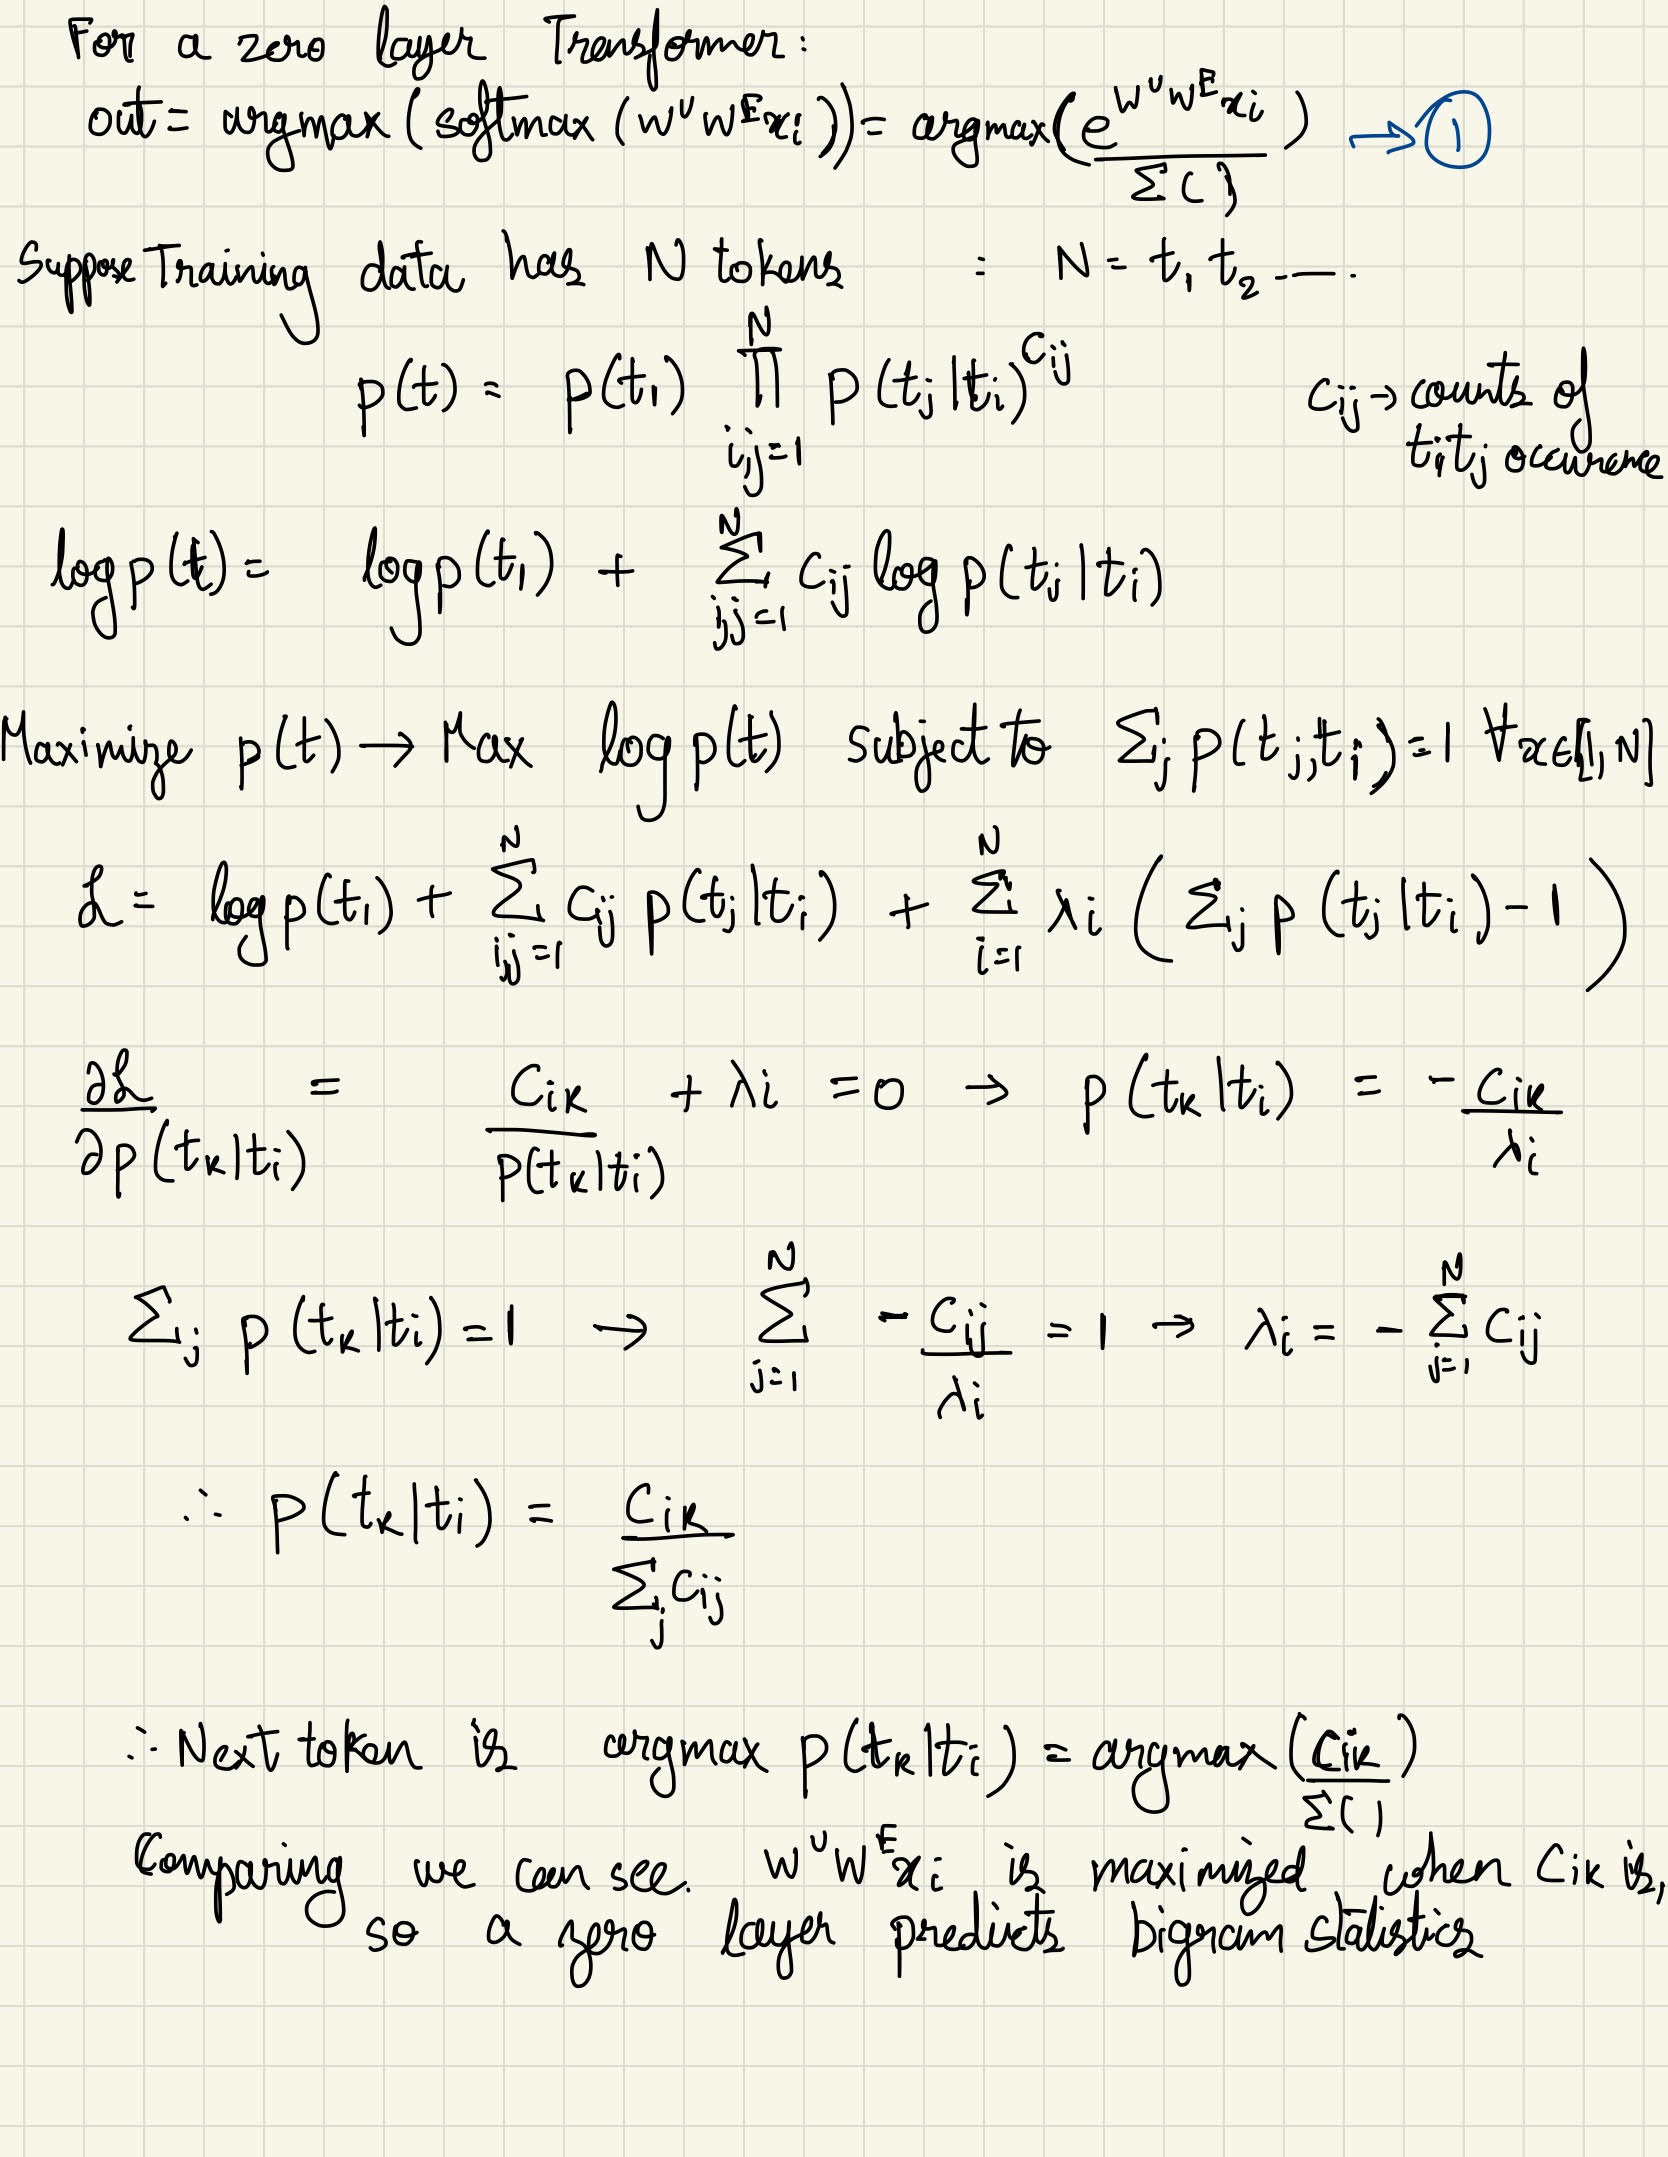 For a zero layer Transformer:
out = argmax (softmax (W^U W^E x_i)) = argmax(e^{W^U W^E x_i} / Σ( )) → ①
Suppose Training data has N tokens : N = t_1 t_2 ----.
p(t) = p(t_1) ∏_{i,j=1}^{N} p(t_j|t_i)^{C_ij} C_ij → counts of
t_i t_j occurence
log p(t) = log p(t_1) + Σ_{i,j=1}^{N} C_ij log p(t_j|t_i)
Maximize p(t) → Max log p(t) subject to Σ_j p(t_j,t_i) = 1 ∀x∈[1,N]
ℒ = log p(t_1) + Σ_{i,j=1}^{N} C_ij p(t_j|t_i) + Σ_{i=1}^{N} λ_i (Σ_j p(t_j|t_i) - 1)
∂ℒ / ∂p(t_k|t_i) = C_ik / p(t_k|t_i) + λ_i = 0 → p(t_k|t_i) = - C_ik / λ_i
Σ_j p(t_k|t_i) = 1 → Σ_{j=1}^{N} - C_ij / λ_i = 1 → λ_i = - Σ_{j=1}^{N} C_ij
∴ p(t_k|t_i) = C_ik / Σ_j C_ij
∴ Next token is argmax p(t_k|t_i) = argmax(C_ik / Σ( ))
Comparing we can see. W^U W^E x_i is maximized when C_ik is,
so a zero layer predicts bigram statistics